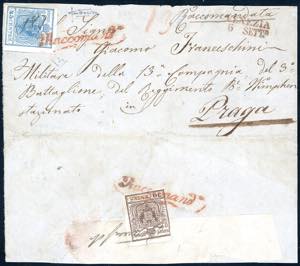 Raccomandata
VENEZIA
6 SETTe
Raccomand.ta
Al Signr
Giacomo Franceschini
Militare della 13a Compagnia del 3o
Battaglione del Reggimento Be Wimpfen
stazionato in
Praga
Raccomand.ta